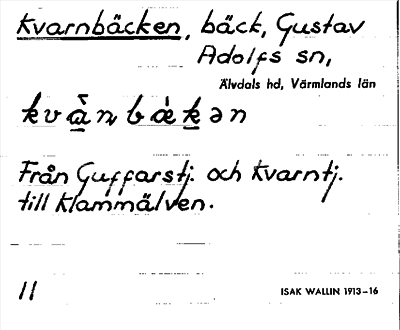 Kvarnbäcken, bäck, Gustav
Adolfs sn,
Älvdals hd, Värmlands län
Från Guffarstj. och Kvarntj.
till Klammälven.
11
ISAK WALLIN 1913–16